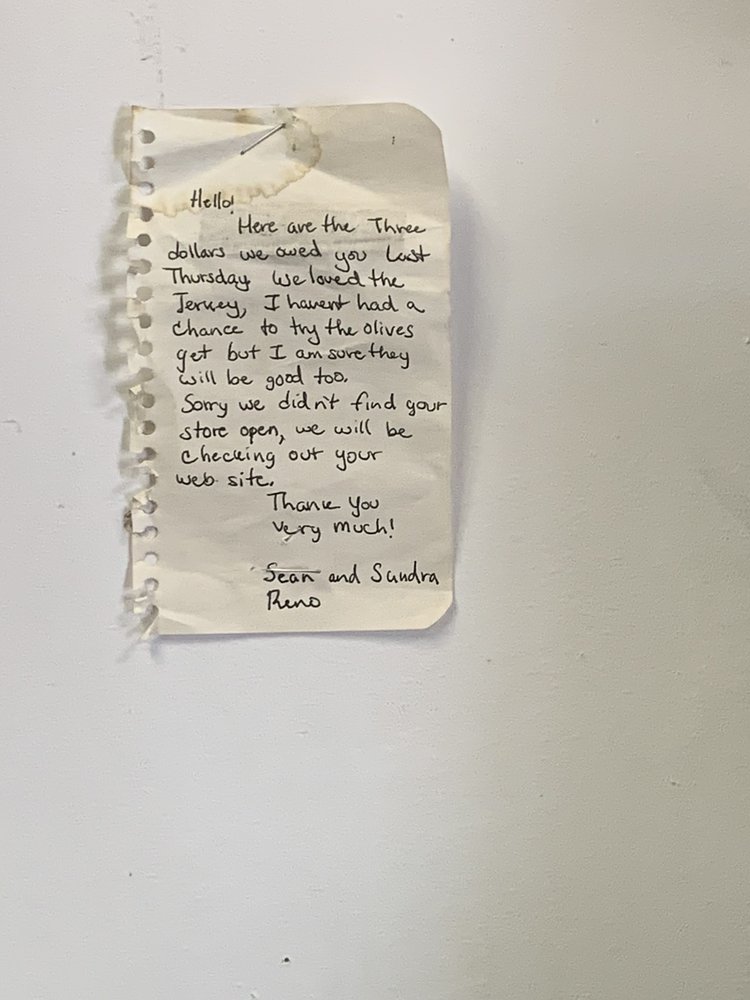 Hello!
Here are the Three
dollars we owed you Last
Thursday we loved the
Jerkey, I havent had a
chance to try the olives
yet but I am sure they
will be good too.
Sorry we didn't find your
store open, we will be
checking out your
web site.
Thank you
very much!
Sean and Sandra
Reno